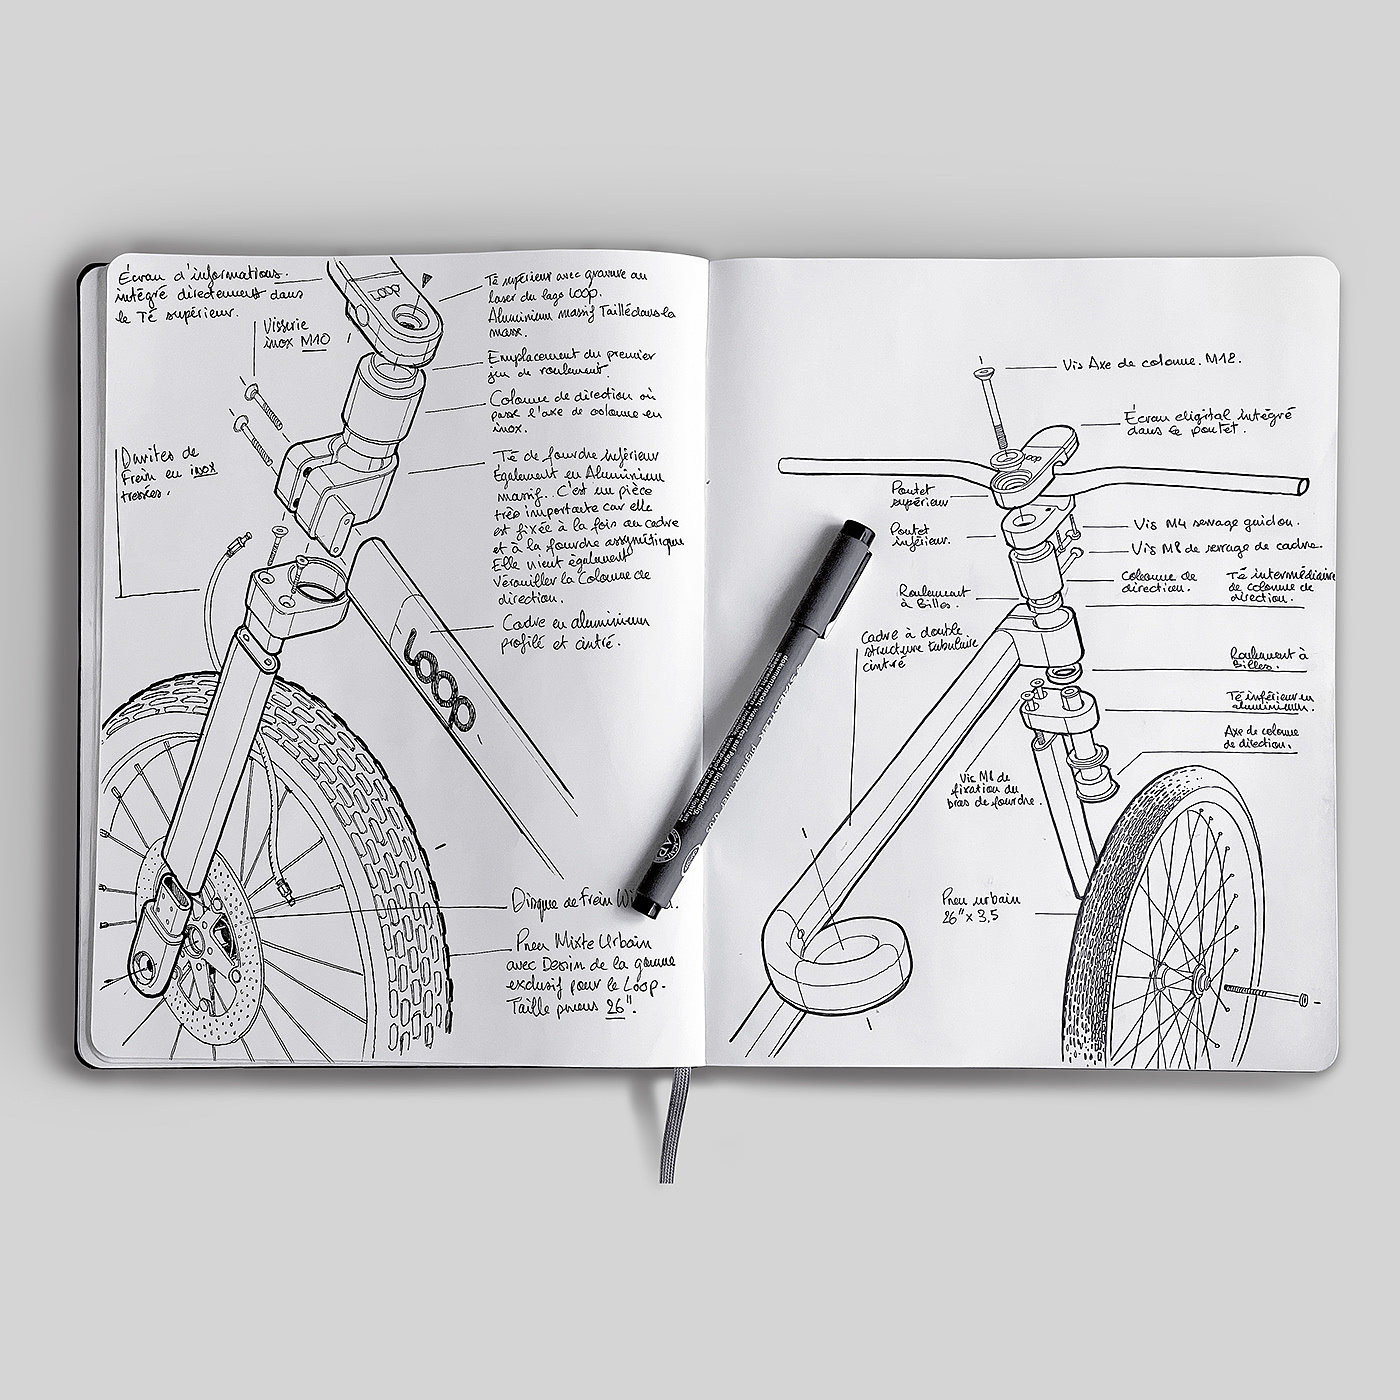 Écran d'informations.
intégré directement dans
le Té supérieur.
Visserie
inox M10
Durites de
Frein en inox
tressées.
LOOP
Té supérieur avec gravure au
laser du logo LOOP.
Aluminium massif Taillé dans la
masse.
Emplacement du premier
jeu de roulement.
Colonne de direction où
passe l'axe de colonne en
inox.
Té de fourche inférieur
Également en Aluminium
massif. C'est un pièce
très importante car elle
est fixée à la fois au cadre
et à la fourche assymétrique
Elle vient également
Verouiller la Colonne de
direction.
Cadre en aluminium
profilé et cintré.
Loop
Disque de Frein
Pneu Mixte Urbain
avec Dessin de la gomme
exclusif pour le Loop.
Taille pneus 26".
Vis Axe de colonne. M12.
Écran digital intégré
dans le poutet.
LOOP
Poutet
supérieur
Poutet
inférieur.
Vis M4 serrage guidon.
Vis M8 de serrage de cadre.
Colonne de
direction.
Té intermédiaire
de colonne de
direction.
Roulement
à billes.
Cadre à double
structure tubulaire
cintré
Roulement à
Billes.
Té inférieur en
aluminium.
Axe de colonne
de direction.
Vis M8 de
fixation du
bras de fourche.
Pneu urbain
26" x 3,5